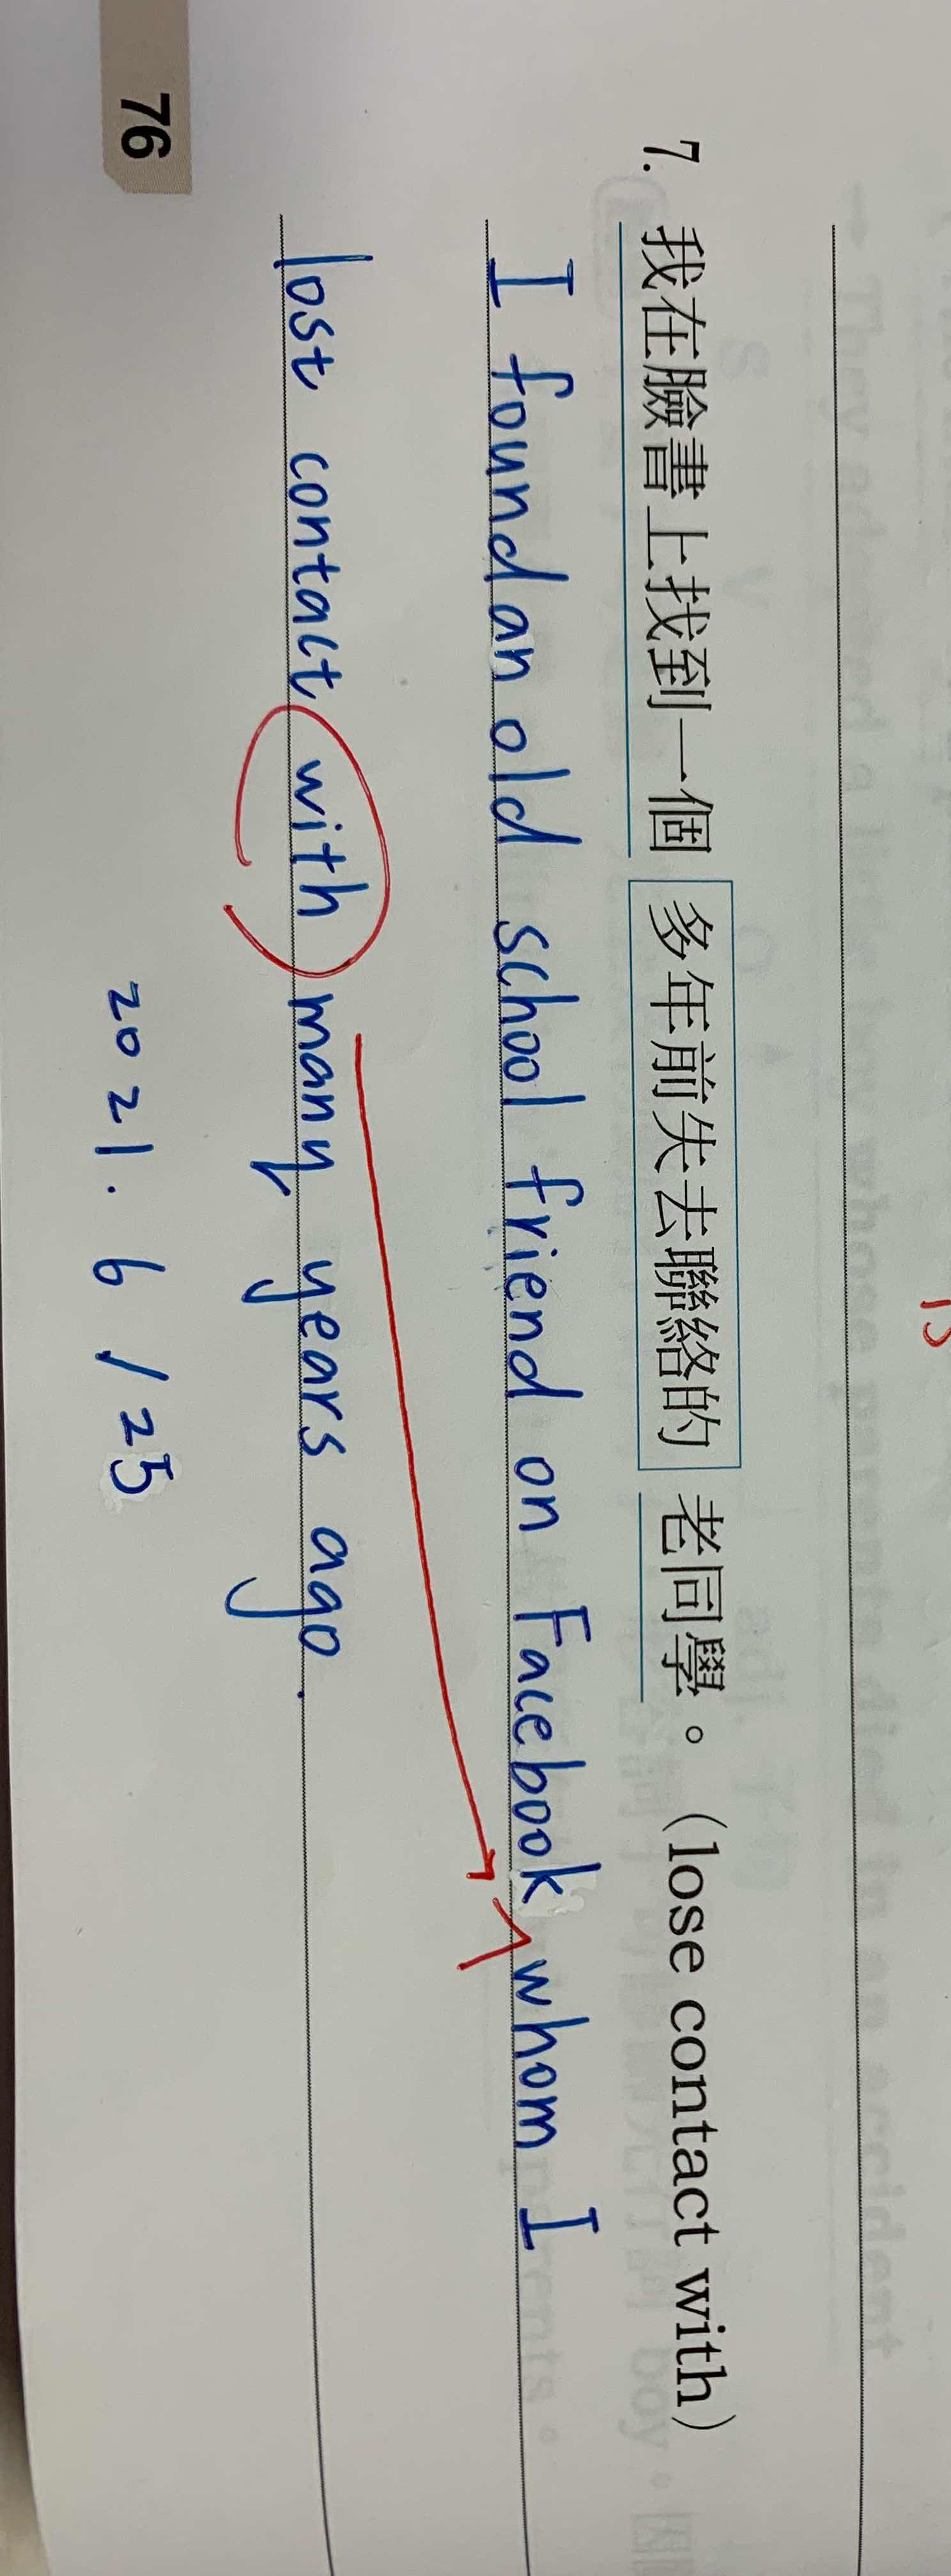 7. 我在臉書上找到一個 多年前失去聯絡的 老同學。(lose contact with)
I found an old school friend on Facebook whom I
lost contact with many years ago.
2021. 6 / 25
76